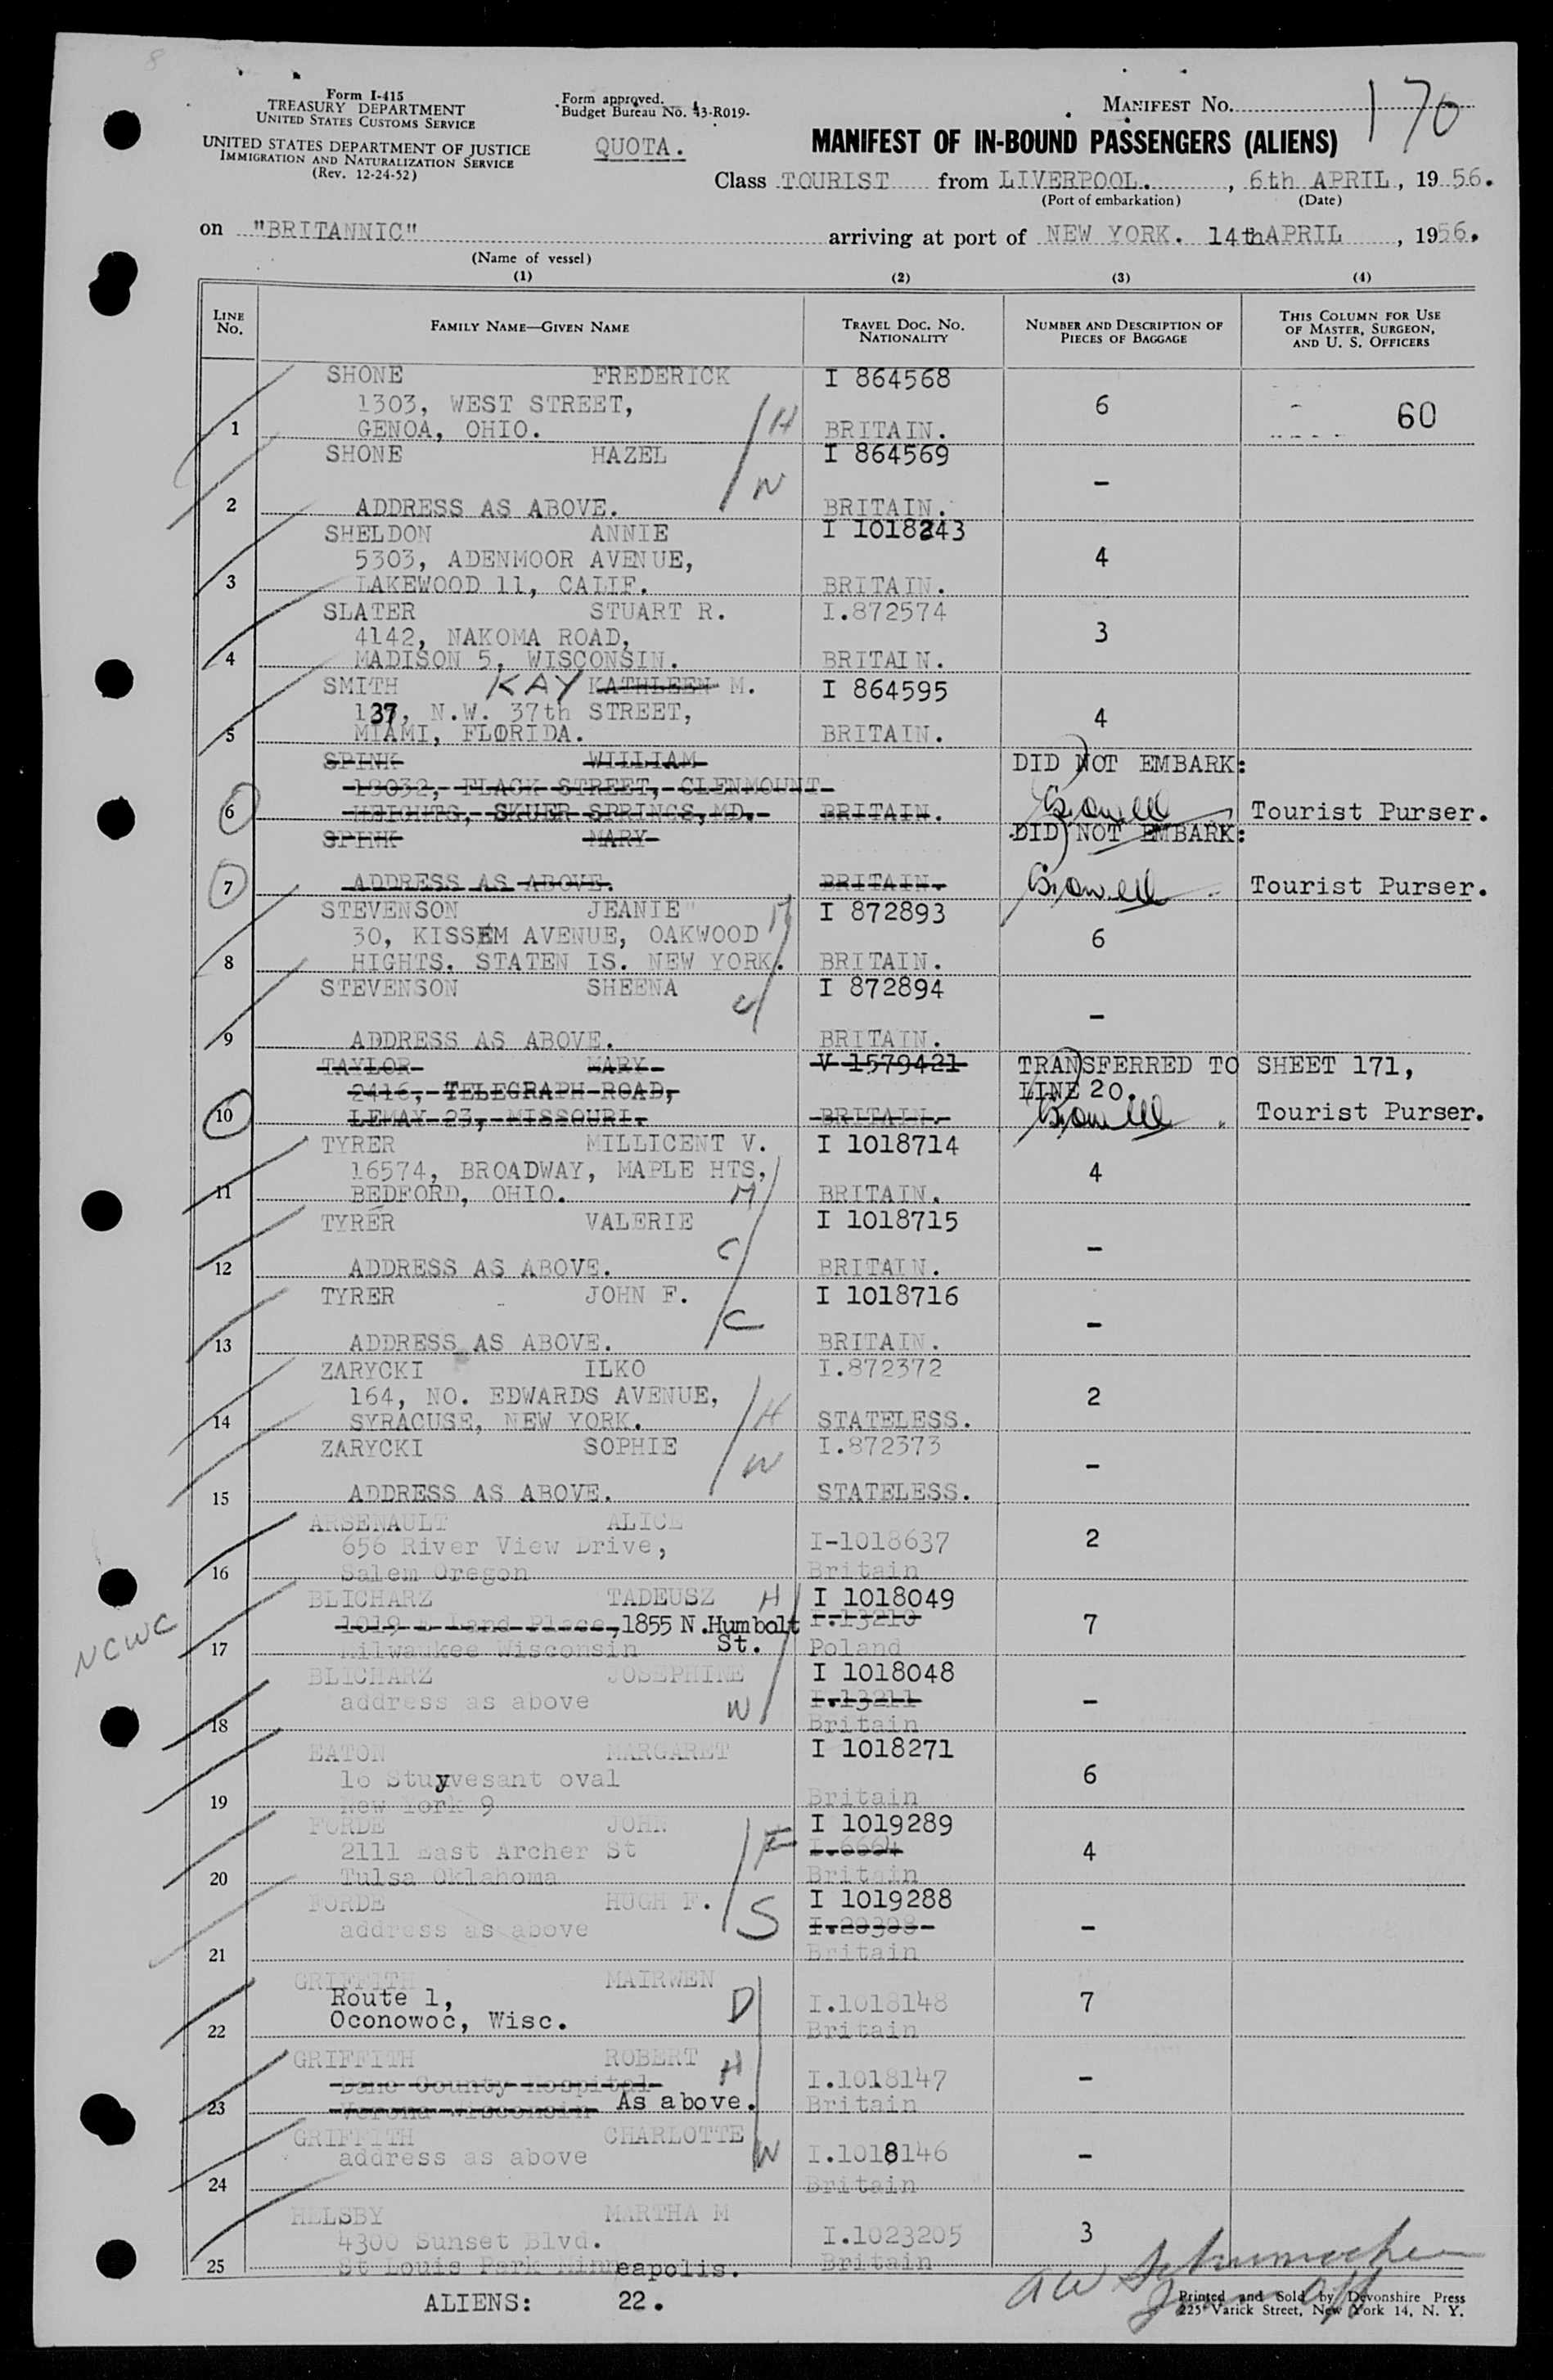 Form I-415
TREASURY DEPARTMENT
UNITED STATES CUSTOMS SERVICE
UNITED STATES DEPARTMENT OF JUSTICE
IMMIGRATION AND NATURALIZATION SERVICE
(Rev. 12-24-52)
Form approved.
Budget Bureau No. 43-R019-
QUOTA.
MANIFEST NO. 170
MANIFEST OF IN-BOUND PASSENGERS (ALIENS)
Class TOURIST from LIVERPOOL. , 6th APRIL, 1956.
(Port of embarkation) (Date)
on "BRITANNIC" arriving at port of NEW YORK. 14th APRIL , 1956.
(Name of vessel)
(1) (2) (3) (4)
LINE NO. FAMILY NAME—GIVEN NAME TRAVEL DOC. NO. NATIONALITY NUMBER AND DESCRIPTION OF PIECES OF BAGGAGE THIS COLUMN FOR USE OF MASTER, SURGEON, AND U. S. OFFICERS
SHONE FREDERICK I 864568
1303, WEST STREET, 6
1 GENOA, OHIO. H BRITAIN. 60
SHONE HAZEL I 864569
W -
2 ADDRESS AS ABOVE. BRITAIN.
SHELDON ANNIE I 1018243
5303, ADENMOOR AVENUE, 4
3 LAKEWOOD 11, CALIF. BRITAIN.
SLATER STUART R. I.872574
4142, NAKOMA ROAD, 3
4 MADISON 5, WISCONSIN. BRITAIN.
SMITH KAY KATHLEEN M. I 864595
137, N.W. 37th STREET, 4
5 MIAMI, FLORIDA. BRITAIN.
SPINK WILLIAM DID NOT EMBARK:
18032, FLACK STREET, GLENMOUNT
6 HEIGHTS, SKUER SPRINGS, MD. BRITAIN. Tourist Purser.
SPINK MARY DID NOT EMBARK:
7 ADDRESS AS ABOVE. BRITAIN. Tourist Purser.
STEVENSON JEANIE M I 872893
30, KISSEM AVENUE, OAKWOOD 6
8 HIGHTS. STATEN IS. NEW YORK. BRITAIN.
STEVENSON SHEENA I 872894
-
9 ADDRESS AS ABOVE. BRITAIN.
TAYLOR MARY V 1579421 TRANSFERRED TO SHEET 171,
2416, TELEGRAPH ROAD, LINE 20.
10 LEMAY 23, MISSOURI. BRITAIN. Tourist Purser.
TYRER MILLICENT V. I 1018714
16574, BROADWAY, MAPLE HTS, 4
11 BEDFORD, OHIO. M BRITAIN.
TYRER VALERIE I 1018715
C -
12 ADDRESS AS ABOVE. BRITAIN.
TYRER JOHN F. I 1018716
C -
13 ADDRESS AS ABOVE. BRITAIN.
ZARYCKI ILKO I.872372
164, NO. EDWARDS AVENUE, 2
14 SYRACUSE, NEW YORK. H STATELESS.
ZARYCKI SOPHIE I.872373
W -
15 ADDRESS AS ABOVE. STATELESS.
ARSENAULT ALICE
656 River View Drive, I-1018637 2
16 Salem Oregon Britain
BLICHARZ TADEUSZ H I 1018049
1019 E Land Place, 1855 N. Humbolt St. I.13210 7
NCWC
17 Milwaukee Wisconsin Poland
BLICHARZ JOSEPHINE I 1018048
address as above W I.13211 -
18 Britain
EATON MARGARET I 1018271
16 Stuyvesant oval 6
19 New York 9 Britain
FORDE JOHN I 1019289
2111 East Archer St F I.6664 4
20 Tulsa Oklahoma Britain
FORDE HUGH F. I 1019288
address as above S I.20308 -
21 Britain
GRIFFITH MAIRWEN
Route 1, D I.1018148 7
22 Oconowoc, Wisc. Britain
GRIFFITH ROBERT
Dane County Hospital H I.1018147 -
23 Verona Wisconsin As above. Britain
GRIFFITH CHARLOTTE
address as above W I.1018146 -
24 Britain
HELSBY MARTHA M
4300 Sunset Blvd. I.1023205 3
25 St Louis Park Minneapolis. Britain
ALIENS: 22.
Printed and Sold by Devonshire Press
225 Varick Street, New York 14, N. Y.